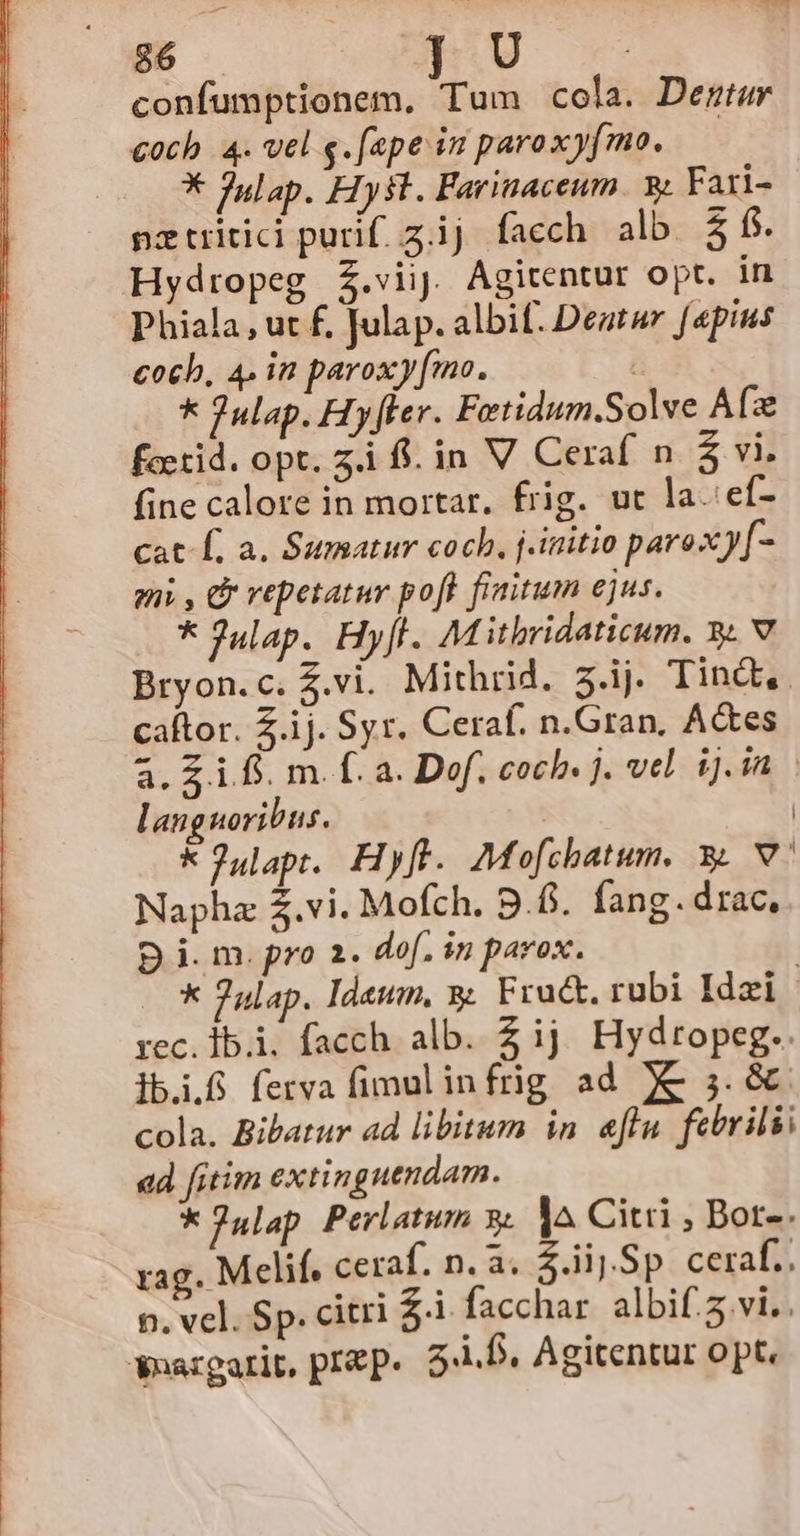 86 J U
conſumptionem. Tum cola. Dentur
coch 4. vel 5. ſæpe in paroxyſmo.
* Julap. Hyſt. Farinaceum. ℞ Fari-
næ tritici puriſ ʒ.ij ſacch alb ℥ ß.
Hydropeg ℥.viij. Agitentur opt. in
Phiala, ut f. Julap. albiſ. Dentur ſæpius
coch, 4. in paroxyſmo.
* Julap. Hyſter. Fœtidum. Solve Aſæ
fœtid. opt. ʒ.i ß. in ▽ Ceraſ n ℥ vi.
ſine calore in mortar. frig. ut la. eſ-
cat ſ, a. Sumatur coch. j. initio paroxyſ-
mi, & repetatur poſt finitum ejus.
* Julap. Hyſt. Mithridaticum. ℞ ▽
Bryon. c. ℥.vi. Mithrid. ʒ.ij. Tinct,
caſtor. ℥.ij. Syr. Ceraſ. n. Gran, Actes
ā. ℥ i ß. m. ſ. a. Doſ. coch. j. vel ij. in
languoribus.
* Julapt. Hyſt. Moſchatum. ℞ ▽
Naphæ ℥.vi. Moſch. ℈.ß. ſang. drac,
℈ i. m. pro 2. doſ. in parox.
* Julap. Idæum, ℞ Fruct. rubi Idæi
rec. ℔.i. ſacch alb. ℥ ij Hydropeg.
℔.i,ß ſerva ſimul in frig ad 3. &
cola. Bibatur ad libitum in æſtu febrili
ad ſitim extinguendam.
* Julap Perlatum ℞ Citri, Bor-
rag. Meliſ, ceraſ. n. ā. ℥.iij. Sp ceraſ.
n. vel. Sp. citri ℥.i ſacchar albiſ ʒ.vi.
margarit, præp. ʒ.i.ß, Agitentur opt,